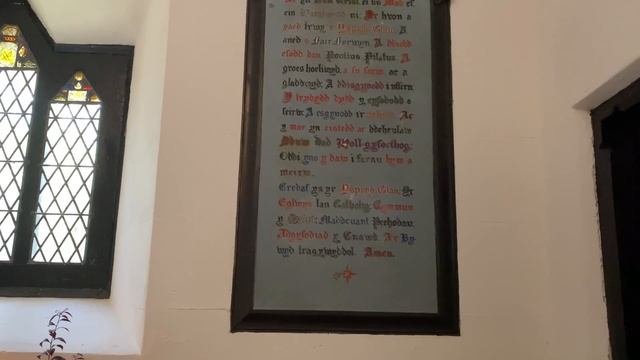 yn Iesu Grist ei un Mab ef,
ein Harglwydd ni; Yr hwn a
gaed trwy yr Yspryd Glan, A
aned o Fair Forwyn, A ddiodd
efodd dan Pontius Pilatus, A
groes hoeliwyd, a fu farw, ac a
gladdwyd; A ddisgynodd i uffern;
Y trydydd dydd y cyfododd o
feirw; A esgynodd i'r nefoedd, Ac
y mae yn eistedd ar ddeheulaw
Dduw Dad Holl-gyfoethog:
Oddi yno y daw i farnu byw a
meirw.
Credaf yn yr Yspryd Glan; Yr
Eglwys lan Gatholig; Cymmun
y Saint; Maddeuant Pechodau;
Adgyfodiad y Cnawd, A'r By-
wyd tragywyddol. Amen.